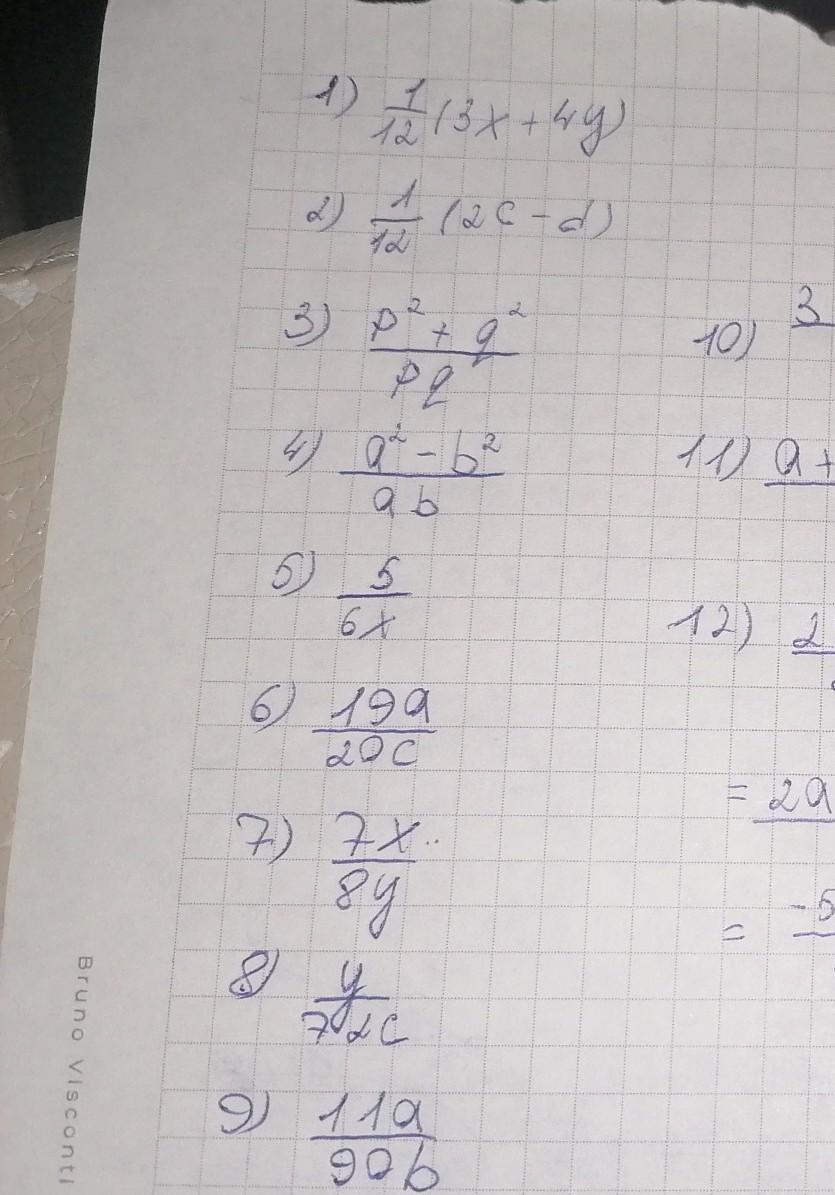 1) 1/12 (3x + 4y)
2) 1/12 (2c - d)
3) p² + q² / pq
4) a² - b² / ab
5) 5 / 6x
6) 19a / 20c
7) 7x / 8y
8) y / 72c
9) 11a / 90b
10) 3
11) a +
12) 2
= 2a
= -5
Bruno Visconti